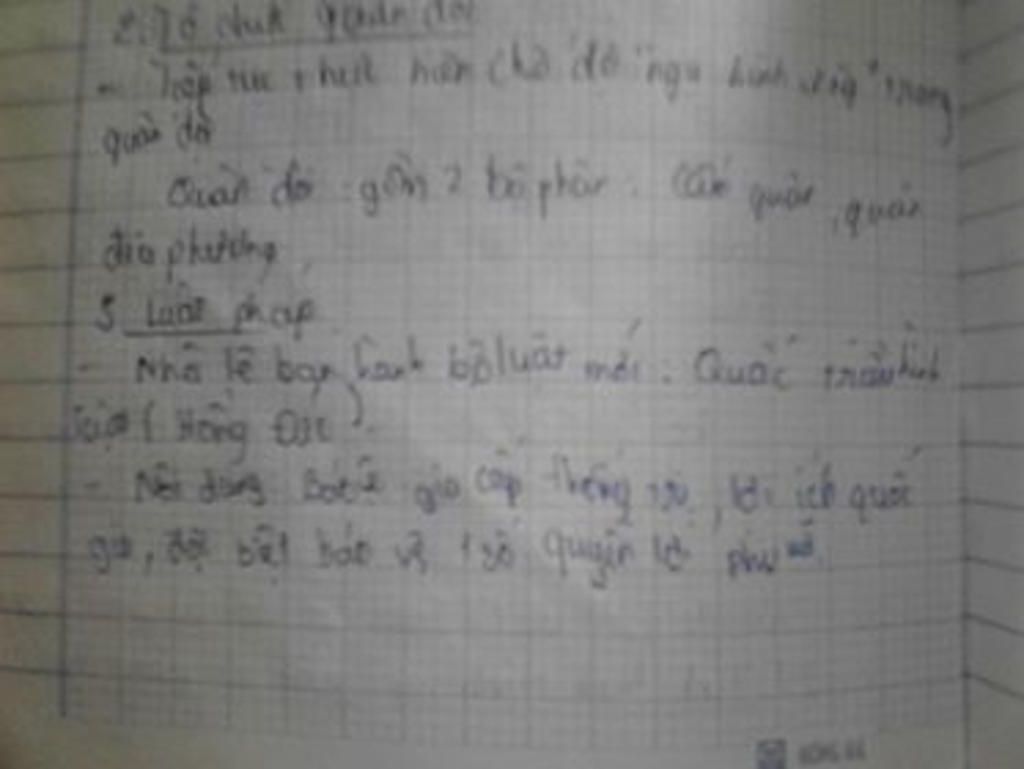 2. Tổ chức quân đội
- Tiếp tục thực hiện chế độ "ngụ binh" trong
quân đội
Quân đội gồm 2 bộ phận: Cấm quân, quân
địa phương
3 Luật pháp
- Nhà lê ban hành bộ luật mới: Quốc triều hình
luật (Hồng Đức)
- Nội dung: Bảo vệ giai cấp thống trị, lợi ích quốc
gia, đặc biệt bảo vệ 1 số quyền lợi phụ nữ.